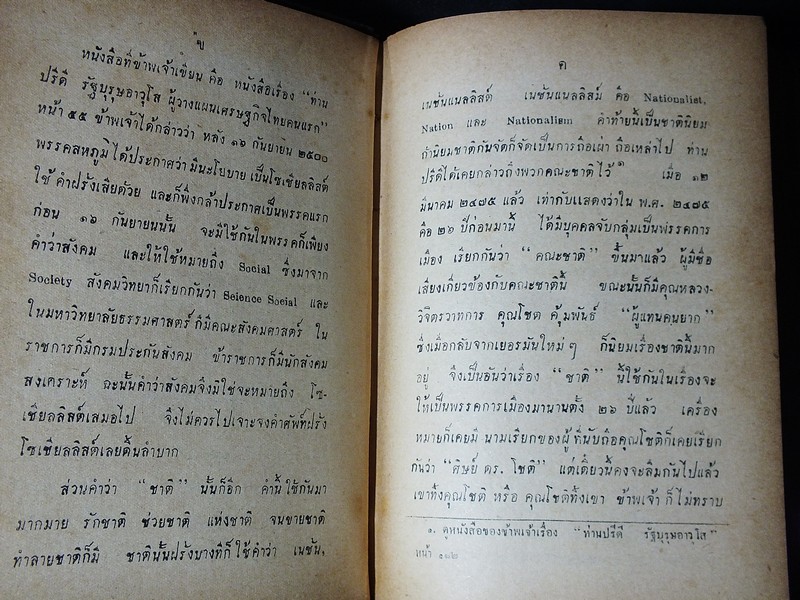 ข
หนังสือที่ข้าพเจ้าเขียน คือ หนังสือเรื่อง “ท่าน
ปรีดี รัฐบุรุษอาวุโส ผู้วางแผนเศรษฐกิจไทยคนแรก”
หน้า ๕๕ ข้าพเจ้าได้กล่าวว่า หลัง ๑๖ กันยายน ๒๕๐๐
พรรคสหภูมิได้ประกาศว่ามีนะโยบาย เป็นโซเชียลลิสต์
ใช้ คำฝรั่งเสียด้วย และก็พึ่งกล้าประกาศเป็นพรรคแรก
ก่อน ๑๖ กันยายนนั้น จะมีใช้กันในพรรคก็เพียง
คำว่าสังคม และให้ใช้หมายถึง Social ซึ่งมาจาก
Society สังคมวิทยาก็เรียกกันว่า Science Social และ
ในมหาวิทยาลัยธรรมศาสตร์ก็มีคณะสังคมศาสตร์ ใน
ราชการก็มีกรมประกันสังคม ข้าราชการก็มีนักสังคม
สงเคราะห์ ฉะนั้นคำว่าสังคมจึงมิใช่จะหมายถึง โซ-
เชียลลิสต์เสมอไป จึงไม่ควรไปเจาะจงคำศัพท์ฝรั่ง
โซเชียลลิสต์เลยดื้นลำบาก
ส่วนคำว่า “ชาติ” นั้นก็อีก คำนี้ ใช้กันมา
มากมาย รักชาติ ช่วยชาติ แห่งชาติ จนขายชาติ
ทำลายชาติก็มี ชาตินั้นฝรั่งบางทีก็ใช้คำว่า เนชั่น,
ค
เนชันแนลลิสต์ เนชันแนลลิสม์ คือ Nationalist,
Nation และ Nationalism คำท้ายนี้เป็นชาตินิยม
ถ้านิยมชาติกันจัดก็จัดเป็นการถือเผ่า ถือเหล่าไป ท่าน
ปรีดีได้เคยกล่าวถึงพวกคณะชาติไว้ ๑ เมื่อ ๑๒
มีนาคม ๒๔๗๕ แล้ว เท่ากับแสดงว่าใน พ.ศ. ๒๔๗๕
คือ ๒๖ ปีก่อนมานี้ ได้มีบุคคลจับกลุ่มเป็นพรรคการ
เมือง เรียกกันว่า “คณะชาติ” ขึ้นมาแล้ว ผู้มีชื่อ
เสียงเกี่ยวข้องกับคณะชาตินี้ ขณะนั้นก็มีคุณหลวง-
วิจิตรวาทการ คุณโชต คุ้มพันธ์ “ผู้แทนคนยาก”
ซึ่งเมื่อกลับจากเยอรมันใหม่ ๆ ก็นิยมเรื่องชาตินี้มาก
อยู่ จึงเป็นอันว่าเรื่อง “ชาติ” นี้ใช้กันในเรื่องจะ
ให้เป็นพรรคการเมืองมานานตั้ง ๒๖ ปีแล้ว เครื่อง
หมายก็เคยมี นามเรียกของผู้ ที่นับถือคุณโชติก็เคยเรียก
กันว่า “ศิษย์ ดร. โชติ” แต่เดี๋ยวนี้คงจะลืมกันไปแล้ว
เขาทิ้งคุณโชติ หรือ คุณโชติทิ้งเขา ข้าพเจ้า ก็ไม่ทราบ
๑. ดูหนังสือของข้าพเจ้าเรื่อง “ท่านปรีดี รัฐบุรุษอาวุโส”
หน้า